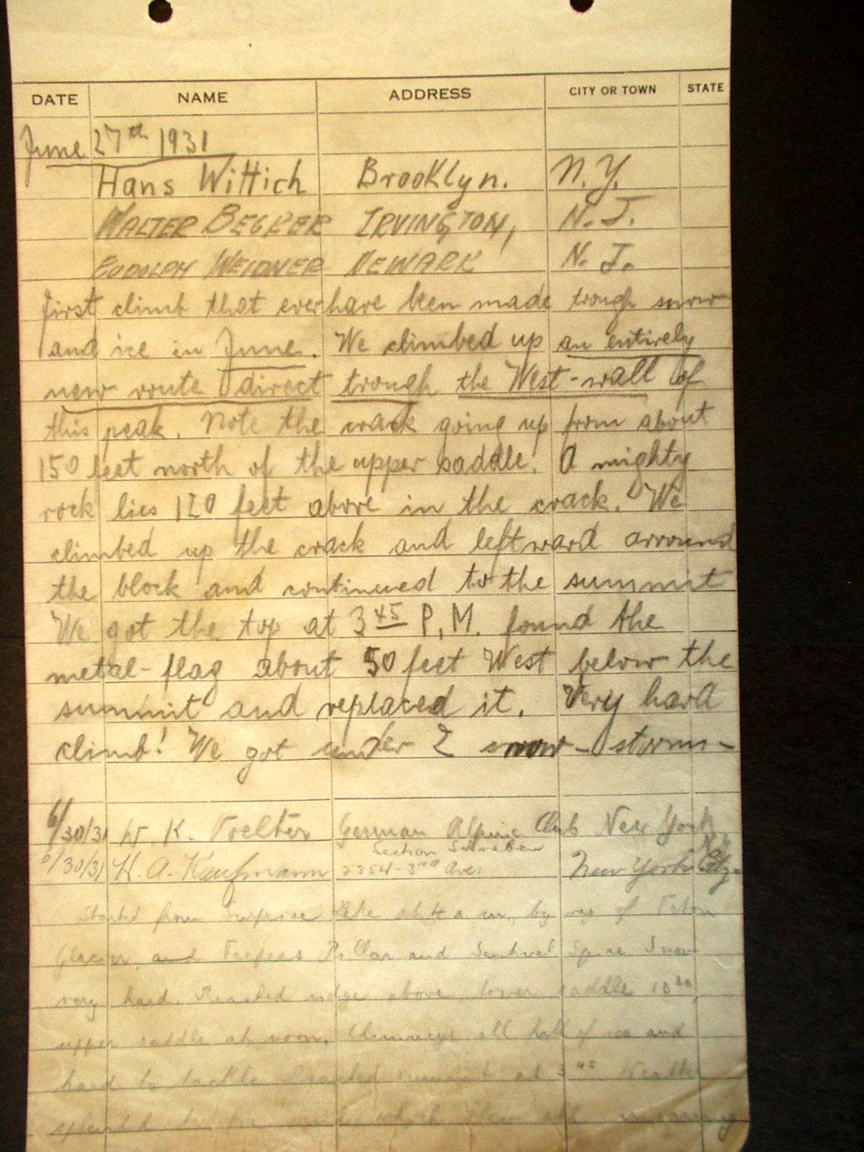 DATE NAME ADDRESS CITY OR TOWN STATE
June 27th 1931
Hans Wittich Brooklyn. N.Y.
WALTER BECKER IRVINGTON, N.J.
RUDOLPH WEIDNER NEWARK N.J.
first climb that ever have been made trough snow
and ice in June. We climbed up an entirely
new route direct trough the West-wall of
this peak. Note the crack going up from about
150 feet north of the upper saddle. A mighty
rock lies 120 feet above in the crack. We
climbed up the crack and leftward arround
the block and continued to the summit
We got the top at 3 45 P.M. found the
metal-flag about 50 feet West below the
summit and replaced it. Very hard
climb! We got under 2 snow-storms-
6/30/31 W. K. German Alpine Club New York
Section
6/30/31 H. A. Kaufmann 2354-3rd Ave. New York City.
Started from Surprise Lake at 4 a.m., by way of Teton
Glacier, and Teepees Pillar and Sentinel Spire Snow
very hard. Reached ridge above lower saddle 10 30,
upper saddle at noon. Chimneys all full of ice and
hard to tackle Reached summit at 3 45 Weather
splendid which blew all morning